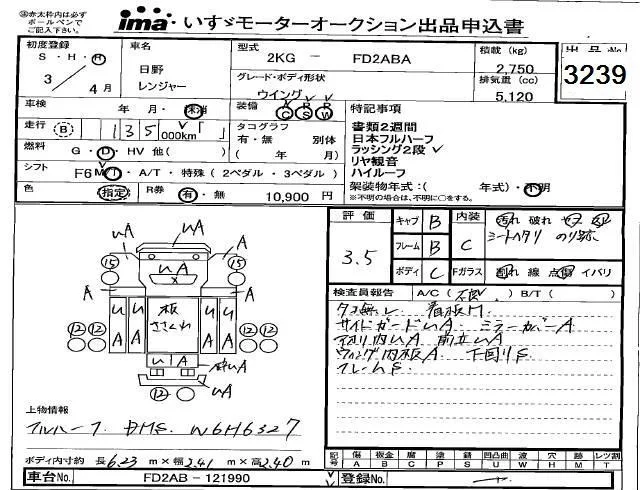 ㊟赤太枠内は必ず
ボールペンで
ご記入下さい。
ima いすゞモーターオークション出品申込書
初度登録
S・H・R
3 4月
車名
日野
レンジャー
型式
2KG - FD2ABA
グレード・ボディ形状
ウイング
積載 (kg)
2,750
排気量 (cc)
5,120
出品No.
3239
車検 年 月・抹消
装備 A C P S P W
走行 B 135 000km
タコグラフ
有・無 別体
( 年 月)
燃料 G・D・HV 他( )
シフト F6 M T・A/T・特殊(2ペダル・3ペダル)
色 指定 R券 有・無 10,900 円
特記事項
書類2週間
日本フルハーフ
ラッシング2段
リヤ観音
ハイルーフ
架装物年式:( 年式)・不明
※不明の場合は、不明に○をする。
評価
3.5
キャブ B
フレーム B
ボディ C
内装 C
Fガラス
汚れ 破れ
シートヘタリ のり跡
割れ 線 点傷 イバリ
検査員報告 A/C( 不良 ) B/T( )
タコ無し 看板M
サイドガードUA ミラーカバーA
アオリ内UA 前立UA
ウィング内板A 下回りS
フレームS
15 15
12 12 12 12
12
UA
A
板
ささくれ
上物情報
フルハーフ DMS W6H6327
ボディ内寸約 長 6.23 m×幅 2.41 m×高 2.40 m
記号 傷 A 板金 B 腐 C 塗 P 錆 S 凹凸曲 U 波 W 穴 H 跡 M レツ割 T
車台No. FD2AB-121990
登録No.